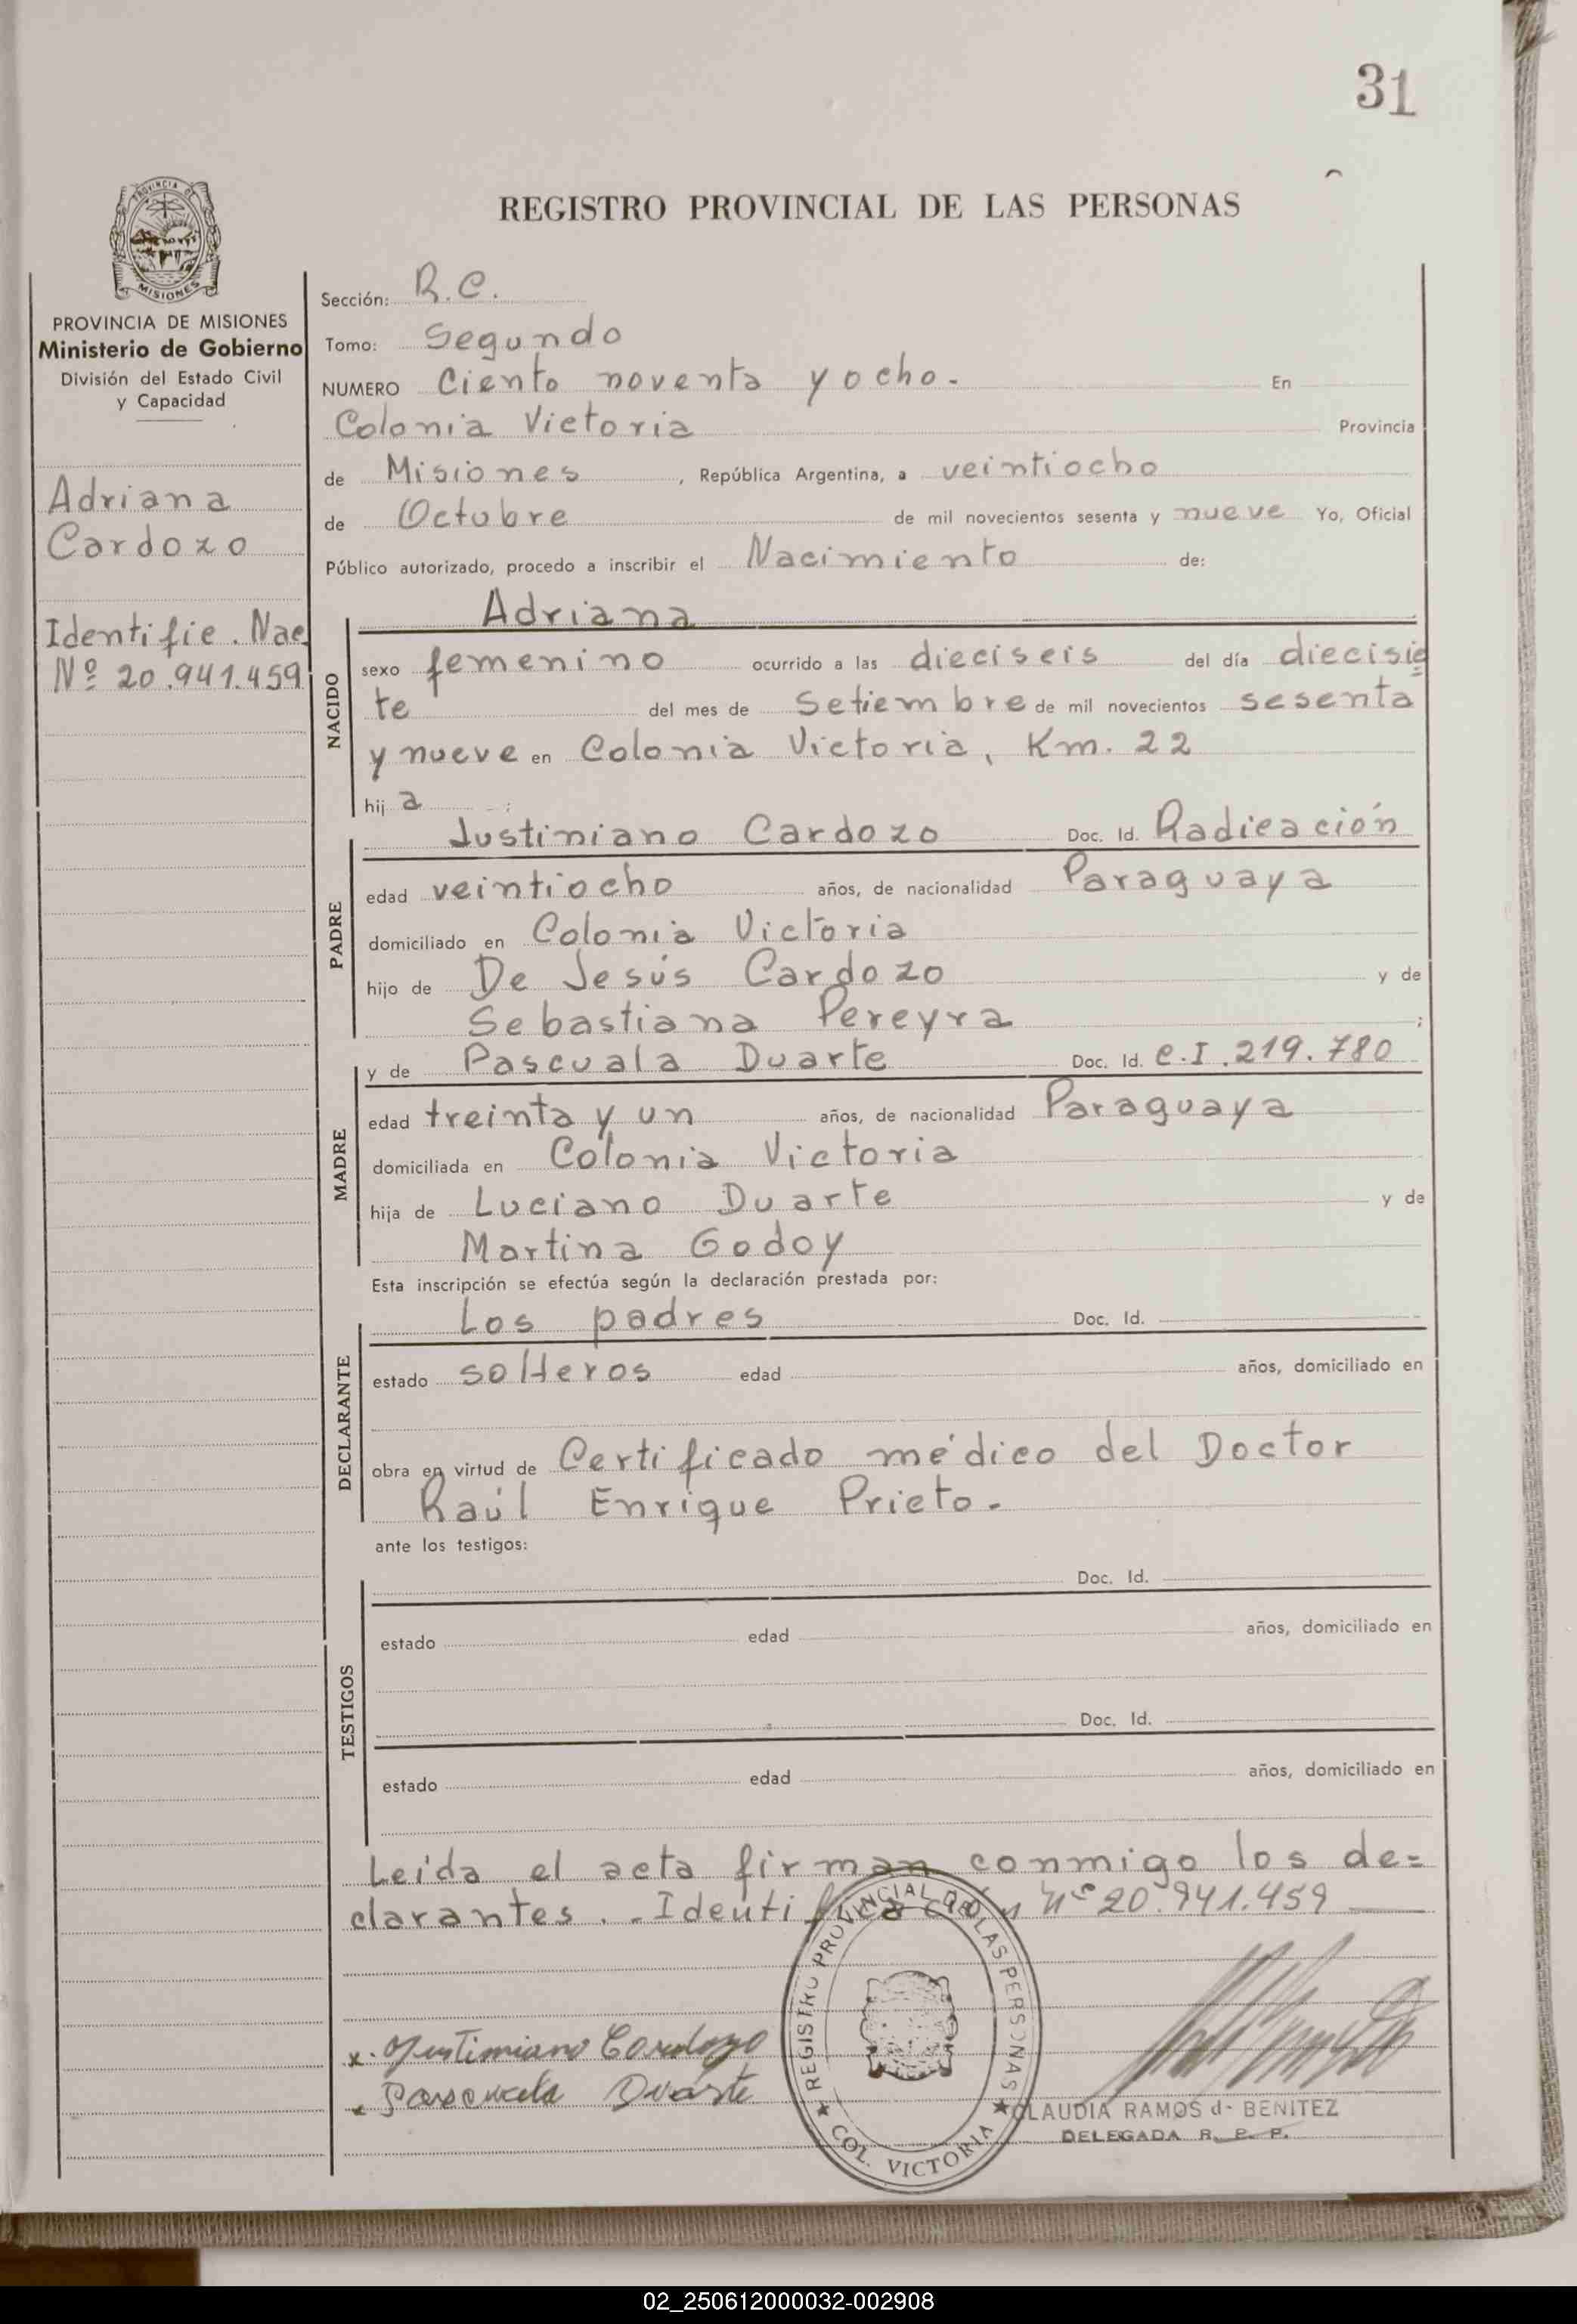 31
REGISTRO PROVINCIAL DE LAS PERSONAS
PROVINCIA DE MISIONES
MISIONES
PROVINCIA DE MISIONES
Ministerio de Gobierno
División del Estado Civil
y Capacidad
Adriana
Cardozo
Identific. Nac
Nº 20.941.459
Sección: R.C.
Tomo: Segundo
NUMERO Ciento noventa y ocho.- En
Colonia Victoria Provincia
de Misiones, República Argentina, a veintiocho
de Octubre de mil novecientos sesenta y nueve Yo, Oficial
Público autorizado, procedo a inscribir el Nacimiento de:
NACIDO
Adriana
sexo femenino ocurrido a las dieciseis del día diecisie
te del mes de Setiembre de mil novecientos sesenta
y nueve en Colonia Victoria, Km. 22
hija ;
PADRE
Justiniano Cardozo Doc. Id. Radicación
edad veintiocho años, de nacionalidad Paraguaya
domiciliado en Colonia Victoria
hijo de De Jesús Cardozo y de
Sebastiana Pereyra ;
MADRE
y de Pascuala Duarte Doc. Id. C.I.219.780
edad treinta y un años, de nacionalidad Paraguaya
domiciliada en Colonia Victoria
hija de Luciano Duarte y de
Martina Godoy
Esta inscripción se efectúa según la declaración prestada por:
DECLARANTE
Los padres Doc. Id.
estado solteros edad años, domiciliado en
obra en virtud de Certificado médico del Doctor
Raúl Enrique Prieto.-
ante los testigos:
TESTIGOS
Doc. Id.
estado edad años, domiciliado en
Doc. Id.
estado edad años, domiciliado en
Leída el acta firman conmigo los de=
clarantes. .-Identificación Nº 20.941.459
x. Justimiano Cardozo
x Pascuala Duarte
★ REGISTRO PROVINCIAL DE LAS PERSONAS ★
COL. VICTORIA
CLAUDIA RAMOS de BENITEZ
DELEGADA R. P. P.
02_250612000032-002908